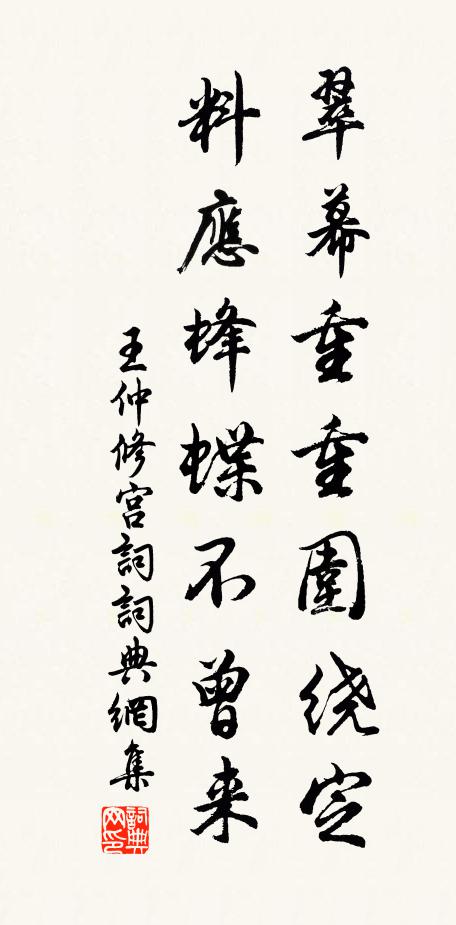 翠幕重重圍绕定
料應蜂蝶不曾来
王仲修宫詞詞典網集
詞典
网印